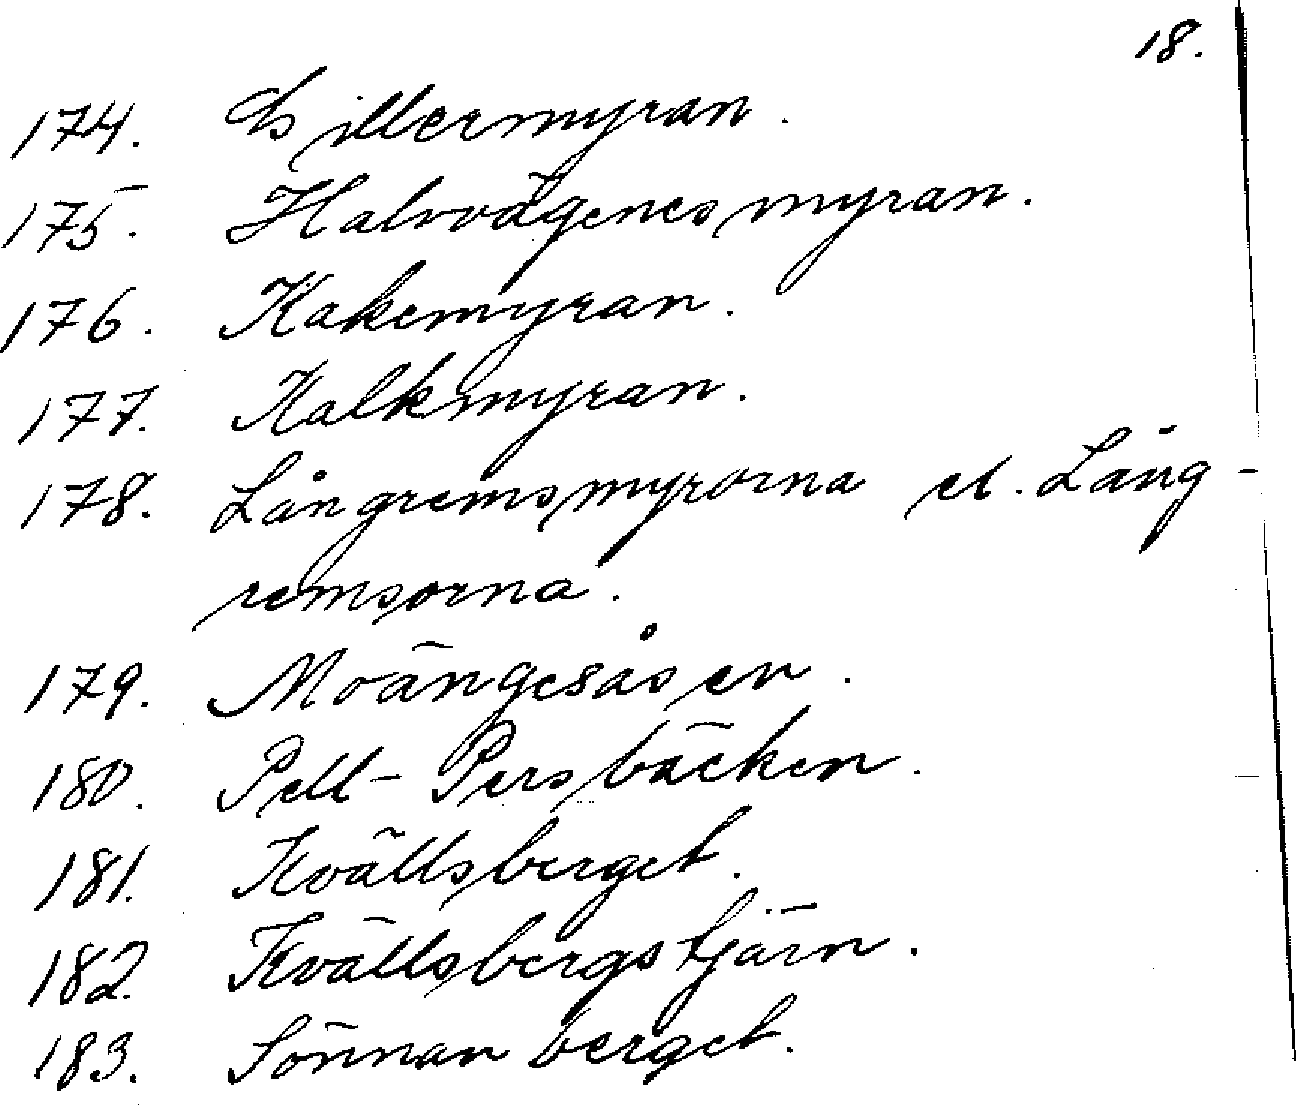 18.
174. Lillermyran.
175. Halvvägenesmyran.
176. Kakemyran.
177. Kalkmyran.
178. Långremsmyrorna el. Lång-
remsorna.
179. Moängesåsen.
180. Pell-Persbäcken.
181. Kvällsberget.
182. Kvällsbergstjärn.
183. Sönnanberget.